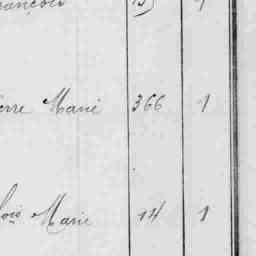 rançois
erre Marié 366 1
çois Marie 14 1